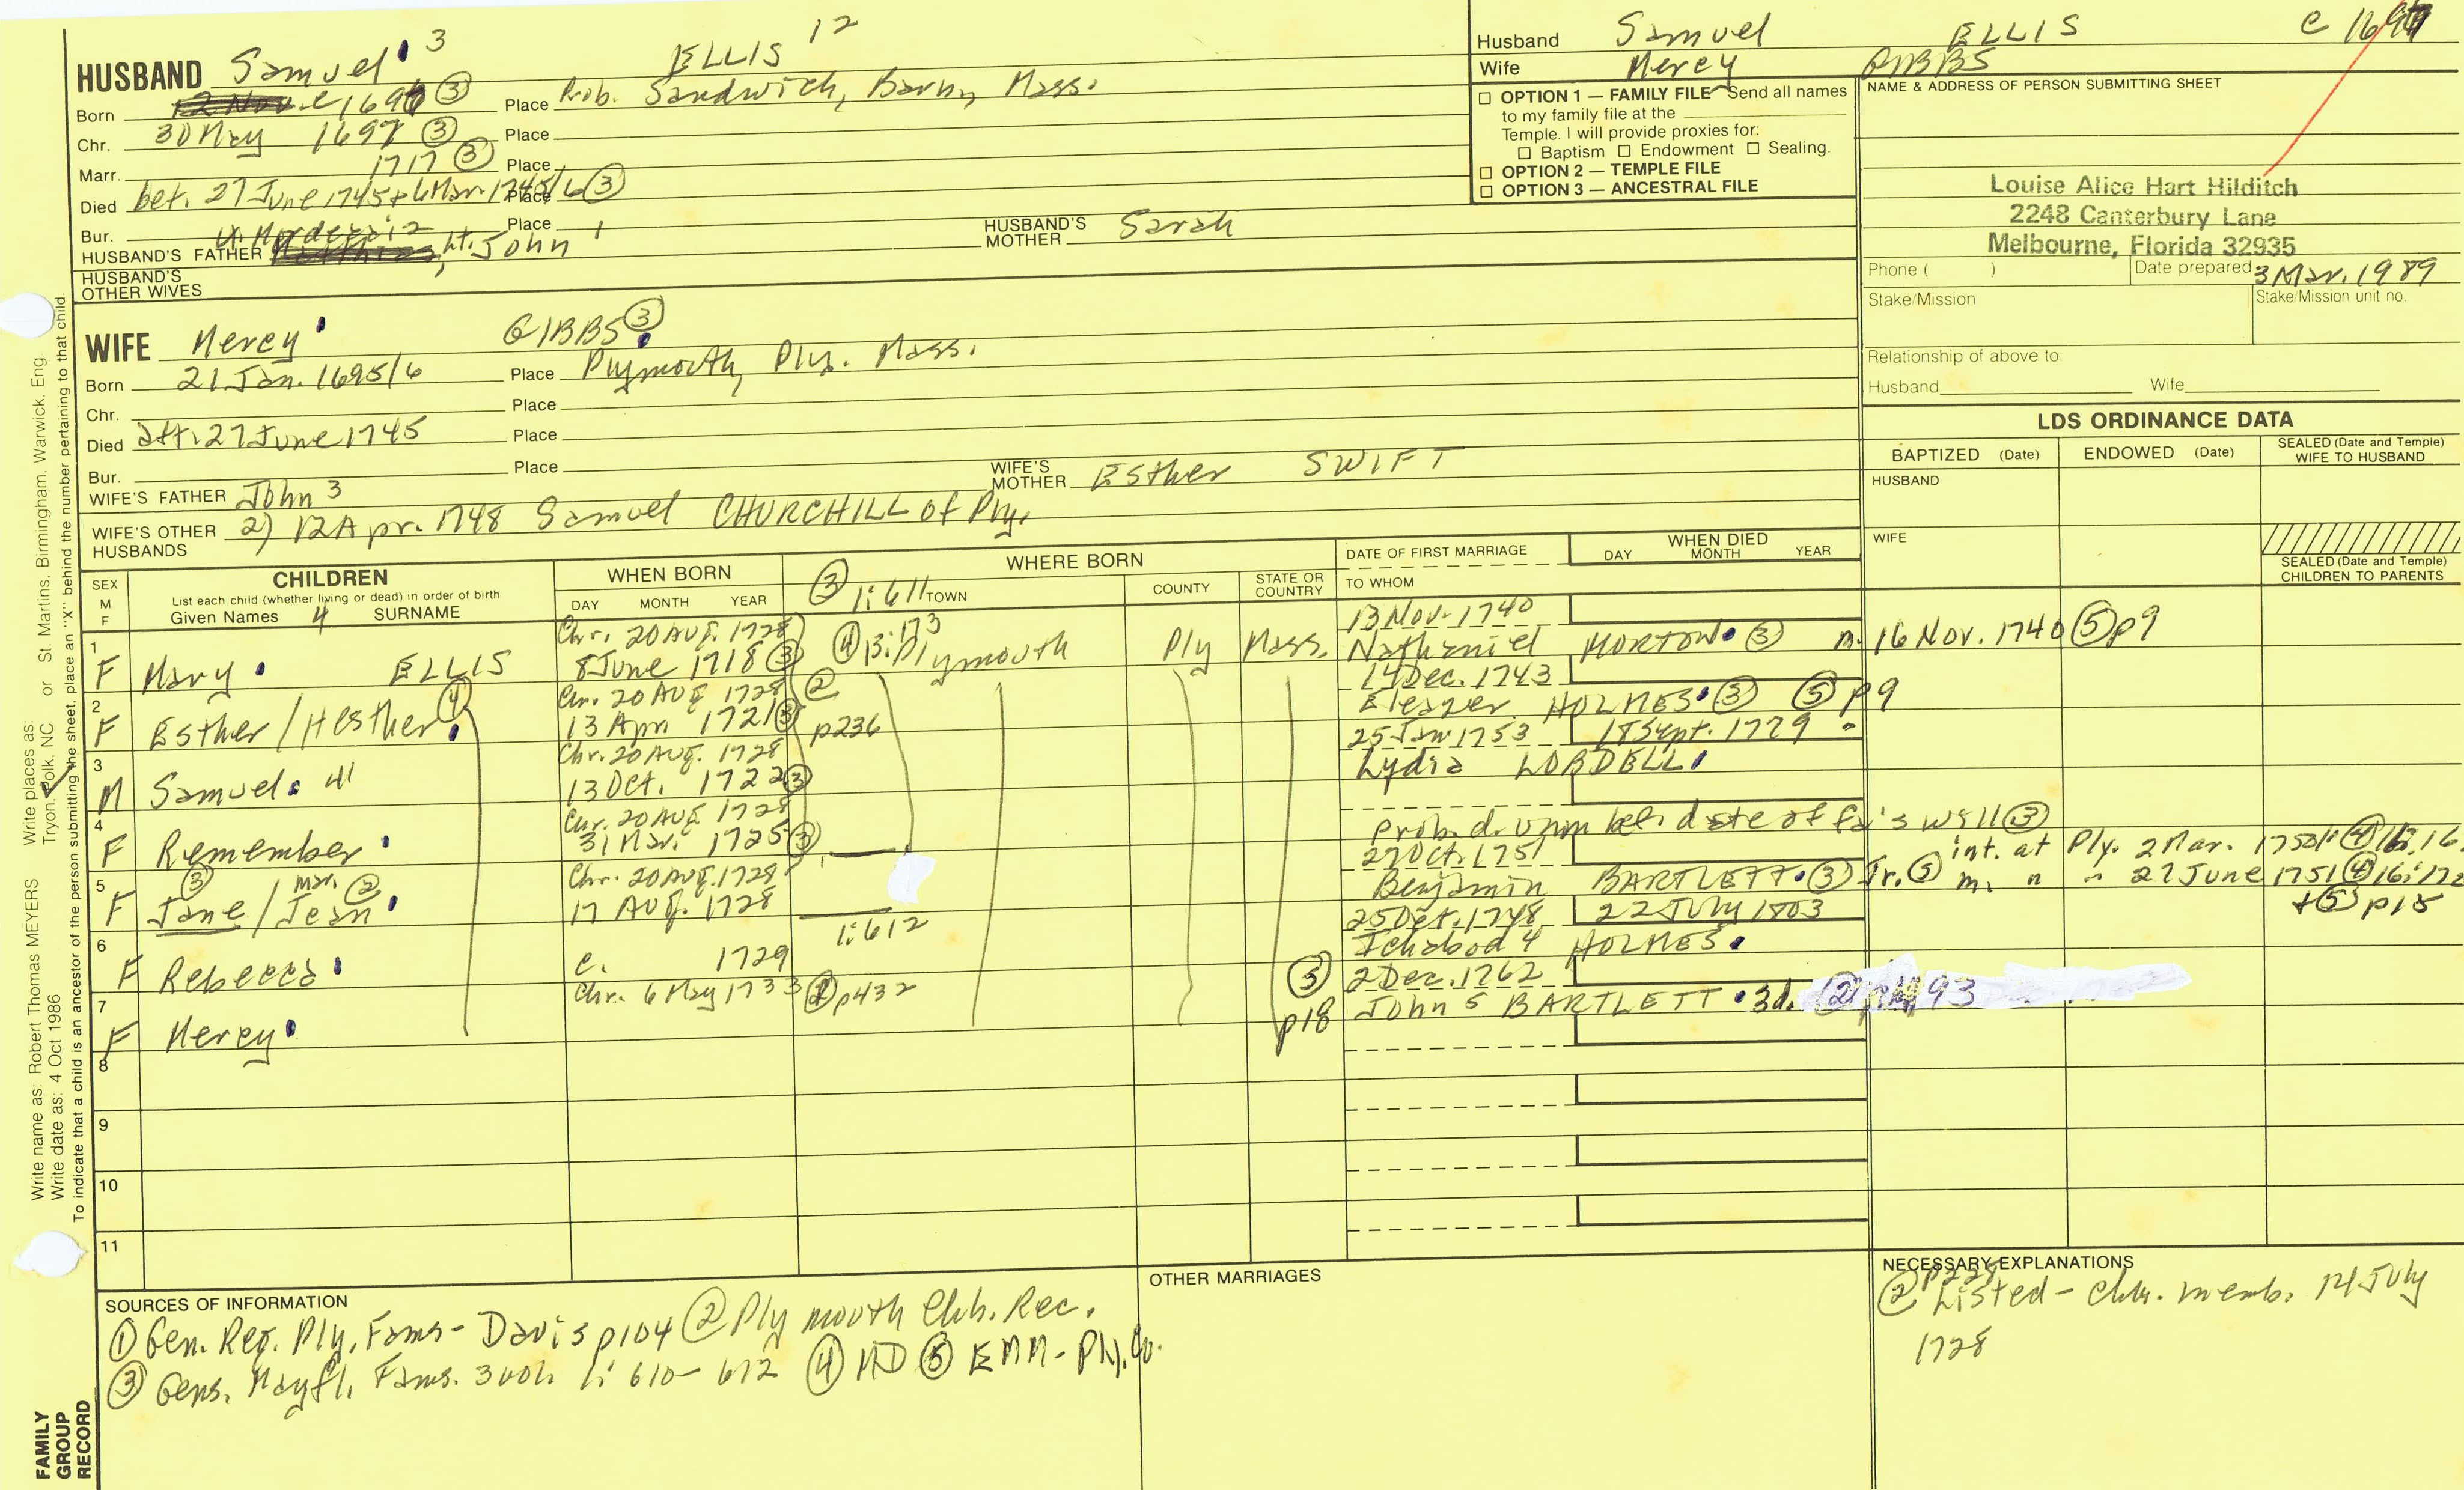 HUSBAND Samuel 3 ELLIS 12
Born c 1697 ③ Place Prob. Sandwich, Barn, Mass.
Chr. 30 May 1697 ③ Place
Marr. 1717 ③ Place
Died bet. 27 June 1745 + 6 Mar. 1745/6 ③ Place
Bur. Place
HUSBAND'S FATHER Lt. John 1 HUSBAND'S MOTHER Sarah
HUSBAND'S OTHER WIVES
WIFE Mercy GIBBS ③
Born 21 Jan. 1695/6 Place Plymouth, Ply. Mass.
Chr. Place
Died aft. 27 June 1745 Place
Bur. Place
WIFE'S FATHER John 3 WIFE'S MOTHER Esther SWIFT
WIFE'S OTHER HUSBANDS 2) 12 Apr. 1748 Samuel CHURCHILL of Ply.
Husband Samuel ELLIS c 1697
Wife Mercy GIBBS
OPTION 1 — FAMILY FILE Send all names
to my family file at the
Temple. I will provide proxies for:
Baptism Endowment Sealing.
OPTION 2 — TEMPLE FILE
OPTION 3 — ANCESTRAL FILE
NAME & ADDRESS OF PERSON SUBMITTING SHEET
Louise Alice Hart Hilditch
2248 Canterbury Lane
Melbourne, Florida 32935
Phone ( ) Date prepared 3 Mar. 1989
Stake/Mission Stake/Mission unit no.
Relationship of above to:
Husband Wife
LDS ORDINANCE DATA
BAPTIZED (Date) ENDOWED (Date) SEALED (Date and Temple) WIFE TO HUSBAND
HUSBAND
WIFE
SEALED (Date and Temple) CHILDREN TO PARENTS
SEX M F
CHILDREN
List each child (whether living or dead) in order of birth
Given Names 4 SURNAME
WHEN BORN
DAY MONTH YEAR
WHERE BORN
③ 1:611 TOWN COUNTY STATE OR COUNTRY
DATE OF FIRST MARRIAGE
TO WHOM
WHEN DIED
DAY MONTH YEAR
1 Chr. 20 Aug. 1728 ④ 13:173 13 Nov. 1740
F Mary ELLIS 8 June 1718 ③ Plymouth Ply Mass. Nathaniel MORTON ③ m. 16 Nov. 1740 ⑤ p9
2 Chr. 20 Aug 1728 ② 14 Dec. 1743
F Esther/Hesther ④ 13 Apr 1721 ③ p236 Eleazer HOLMES ③ ⑤ p9
3 Chr. 20 Aug. 1728 25 Jan 1753 18 Sept. 1779
M Samuel 41 13 Oct. 1722 ③ Lydia LOBDELL
4 Chr. 20 Aug. 1728
F Remember 31 Mar. 1725 ③ Prob. d. unm bef. date of fa's will ③
5 Chr. 20 Aug. 1728 27 Oct. 1751 int. at Ply. 2 Mar.
F Jane ③ / Jean mar. ② 17 Aug. 1728 Benjamin BARTLETT ③ Jr. ⑤ m. " " 27 June 1751 ④ 16:172
+ ⑤ p15
6 1:612 25 Oct. 1748 22 July 1803
F Rebecca c. 1729 Ichabod 4 HOLMES
7 Chr. 6 May 1733 ② p432 ⑤ p18 2 Dec. 1762
F Mercy John 5 BARTLETT 3d. 93
8
9
10
11
SOURCES OF INFORMATION
① Gen. Reg. Ply. Fams - Davis p104 ② Plymouth Chh. Rec.
③ Gens. Mayfl. Fams. 3 vol. 1: 610-612 ④ MD ⑤ EMM - Ply. Co.
OTHER MARRIAGES
NECESSARY EXPLANATIONS
② p228 Listed - chh. memb. 14 July
1728
Write name as: Robert Thomas MEYERS Write places as: Tryon, Polk, NC or St. Martins, Birmingham, Warwick, Eng
Write date as: 4 Oct 1986
To indicate that a child is an ancestor of the person submitting the sheet, place an "X" behind the number pertaining to that child.
FAMILY
GROUP
RECORD